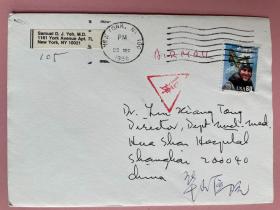 Samuel D. J. Yeh, M.D.
1161 York Avenue Apt.
New York, NY 10021
105
NEW YORK, NY 100
PM
1996
AIR MAIL
USA 60
Dr. Lin Xiang Tong
Director, Dept nucl. med.
Hua Shan Hospital
Shanghai 200040
China
华山医院